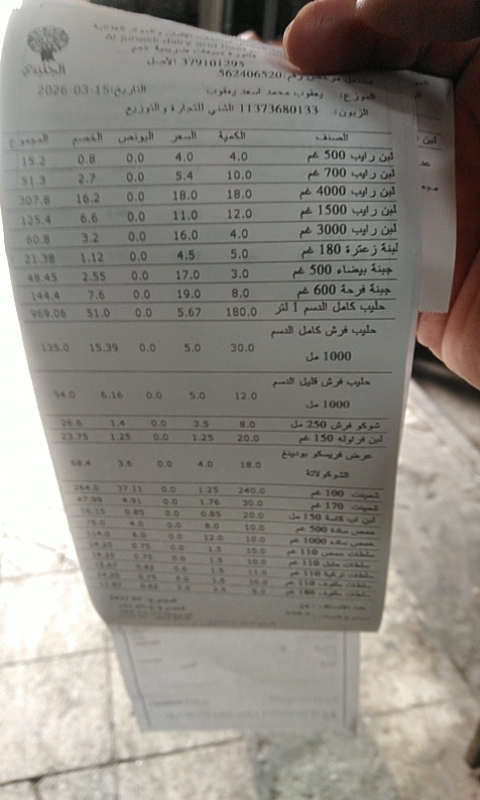 الجنيدي
Al juneidi dairy and food
379101295 الأصل
562406520
الموزع: يعقوب محمد اسعد يعقوب التاريخ: 2026-03-15
الزبون: 11373680133 الشني للتجارة والتوزيع
الصنف الكمية السعر البونص الخصم المجموع
لبن رايب 500 غم 4.0 4.0 0.0 0.8 15.2
لبن رايب 700 غم 10.0 5.4 0.0 2.7 51.3
لبن رايب 4000 غم 18.0 18.0 0.0 16.2 307.8
لبن رايب 1500 غم 12.0 11.0 0.0 6.6 125.4
لبن رايب 3000 غم 4.0 16.0 0.0 3.2 60.8
لبنة زعترة 180 غم 5.0 4.5 0.0 1.12 21.38
جبنة بيضاء 500 غم 3.0 17.0 0.0 2.55 48.45
جبنة فرحة 600 غم 8.0 19.0 0.0 7.6 144.4
حليب كامل الدسم 1 لتر 180.0 5.67 0.0 51.0 969.06
حليب فرش كامل الدسم
1000 مل 30.0 5.0 0.0 15.39 135.0
حليب فرش قليل الدسم
1000 مل 12.0 5.0 0.0 6.16 54.0
شوكو فرش 250 مل 8.0 3.5 0.0 1.4 26.6
لبن فراولة 150 غم 20.0 1.25 0.0 1.25 23.75
عرض فريسكو بودينغ
الشوكولاتة 18.0 4.0 0.0 3.6 68.4
شمينت 100 غم 240.0 1.25 0.0 37.11 264.0
شمينت 170 غم 30.0 1.76 0.0 4.91 47.99
لبن اب كاسة 150 مل 20.0 0.85 0.0 0.85 16.15
حمص سادة 500 غم 10.0 8.0 0.0 4.0 76.0
حمص سادة 1000 غم 10.0 12.0 0.0 6.0 114.0
سلطات حمص 110 غم 10.0 1.5 0.0 0.75 14.25